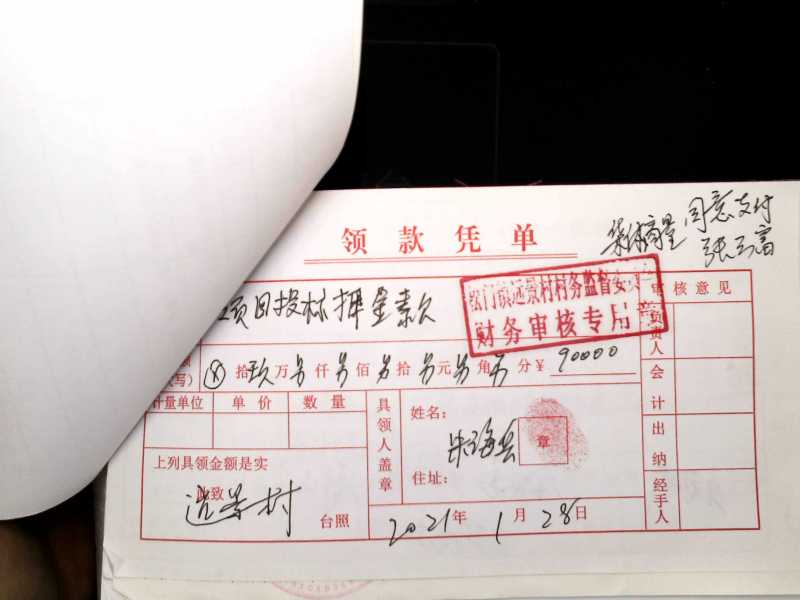 领款凭单
同意支付
项目投标押金款
松门镇远景村村务监督委
财务审核专用章
审核意见
负责人
会计
出纳
经手人
写） ⊗ 拾 玖 万 另 仟 另 佰 另 拾 另 元 另 角 另 分 ￥ 90000
计量单位 单价 数量
具领人盖章
姓名：
朱海兵
章
住址：
上列具领金额是实
此致
远景村 台照
2021年1月28日